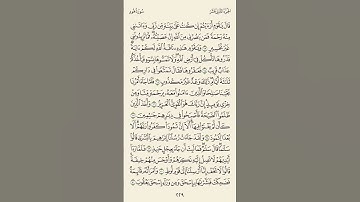 الجزء الثاني عشر
سورة هود
قَالَ يَٰقَوْمِ أَرَءَيْتُمْ إِن كُنتُ عَلَىٰ بَيِّنَةٍ مِّن رَّبِّي وَءَاتَىٰنِي
مِنْهُ رَحْمَةً فَمَن يَنصُرُنِي مِنَ ٱللَّهِ إِنْ عَصَيْتُهُۥ فَمَا تَزِيدُونَنِي
غَيْرَ تَخْسِيرٍ ٦٣ وَيَٰقَوْمِ هَٰذِهِۦ نَاقَةُ ٱللَّهِ لَكُمْ ءَايَةً
فَذَرُوهَا تَأْكُلْ فِيٓ أَرْضِ ٱللَّهِ وَلَا تَمَسُّوهَا بِسُوٓءٍ فَيَأْخُذَكُمْ
عَذَابٌ قَرِيبٌ ٦٤ فَعَقَرُوهَا فَقَالَ تَمَتَّعُوا۟ فِي دَارِكُمْ
ثَلَٰثَةَ أَيَّامٍ ذَٰلِكَ وَعْدٌ غَيْرُ مَكْذُوبٍ ٦٥ فَلَمَّا جَآءَ أَمْرُنَا
نَجَّيْنَا صَٰلِحًا وَٱلَّذِينَ ءَامَنُوا۟ مَعَهُۥ بِرَحْمَةٍ مِّنَّا وَمِنْ
خِزْيِ يَوْمِئِذٍ إِنَّ رَبَّكَ هُوَ ٱلْقَوِيُّ ٱلْعَزِيزُ ٦٦ وَأَخَذَ ٱلَّذِينَ
ظَلَمُوا۟ ٱلصَّيْحَةُ فَأَصْبَحُوا۟ فِي دِيَٰرِهِمْ جَٰثِمِينَ ٦٧
كَأَن لَّمْ يَغْنَوْا۟ فِيهَآ أَلَآ إِنَّ ثَمُودَا۟ كَفَرُوا۟ رَبَّهُمْ أَلَا
بُعْدًا لِّثَمُودَ ٦٨ وَلَقَدْ جَآءَتْ رُسُلُنَآ إِبْرَٰهِيمَ بِٱلْبُشْرَىٰ قَالُوا۟
سَلَٰمًا قَالَ سَلَٰمٌ فَمَا لَبِثَ أَن جَآءَ بِعِجْلٍ حَنِيذٍ ٦٩ فَلَمَّا رَءَآ
أَيْدِيَهُمْ لَا تَصِلُ إِلَيْهِ نَكِرَهُمْ وَأَوْجَسَ مِنْهُمْ خِيفَةً
قَالُوا۟ لَا تَخَفْ إِنَّآ أُرْسِلْنَآ إِلَىٰ قَوْمِ لُوطٍ ٧٠ وَٱمْرَأَتُهُۥ قَآئِمَةٌ
فَضَحِكَتْ فَبَشَّرْنَٰهَا بِإِسْحَٰقَ وَمِن وَرَآءِ إِسْحَٰقَ يَعْقُوبَ ٧١
٢٢٩